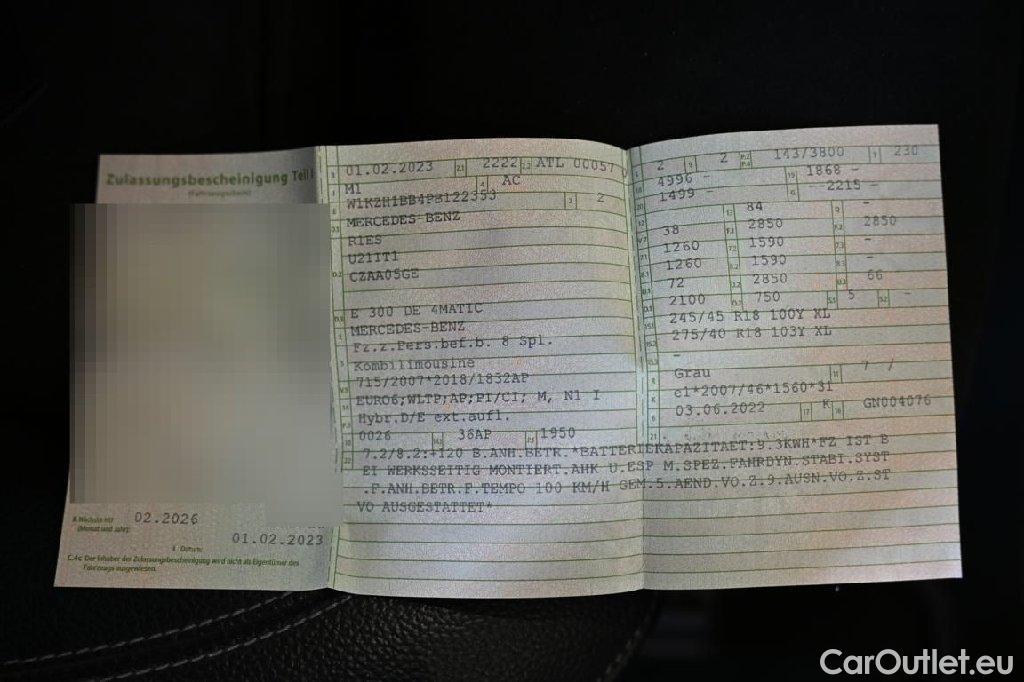 Zulassungsbescheinigung Teil I
(Fahrzeugschein)
02.2026
01.02.2023
C.4c Der Inhaber der Zulassungsbescheinigung wird nicht als Eigentümer des
Fahrzeugs ausgewiesen.
01.02.2023 2222 ATL 00057
M1 AC
W1KZH1BB4PB122353 2
MERCEDES-BENZ
R1ES
U211T1
CZAA05GE
E 300 DE 4MATIC
MERCEDES-BENZ
Fz.z.Pers.bef.b. 8 Spl.
Kombilimousine
715/2007*2018/1832AP
EURO6;WLTP;AP;PI/CI; M, N1 I
Hybr.D/E ext.aufl.
0026 36AP 1950
2 2 143/3800 230
4996 - 1868 -
1499 - 2215 -
84 -
38 2850 2850
1260 1590 -
1260 1590 -
72 2850 66
2100 750 5 -
245/45 R18 100Y XL
275/40 R18 103Y XL
-
Grau 7 /
e1*2007/46*1560*31
03.06.2022 K GN004076
7.2/8.2:+120 B.ANH.BETR.*BATTERIEKAPAZITAET:9.3KWH*FZ IST B
EI WERKSSEITIG MONTIERT.AHK U.ESP M.SPEZ.FAHRDYN.STABI.SYST
.F.ANH.BETR.F.TEMPO 100 KM/H GEM.5.AEND.VO.Z.9.AUSN.VO.Z.ST
VO AUSGESTATTET*
CarOutlet.eu